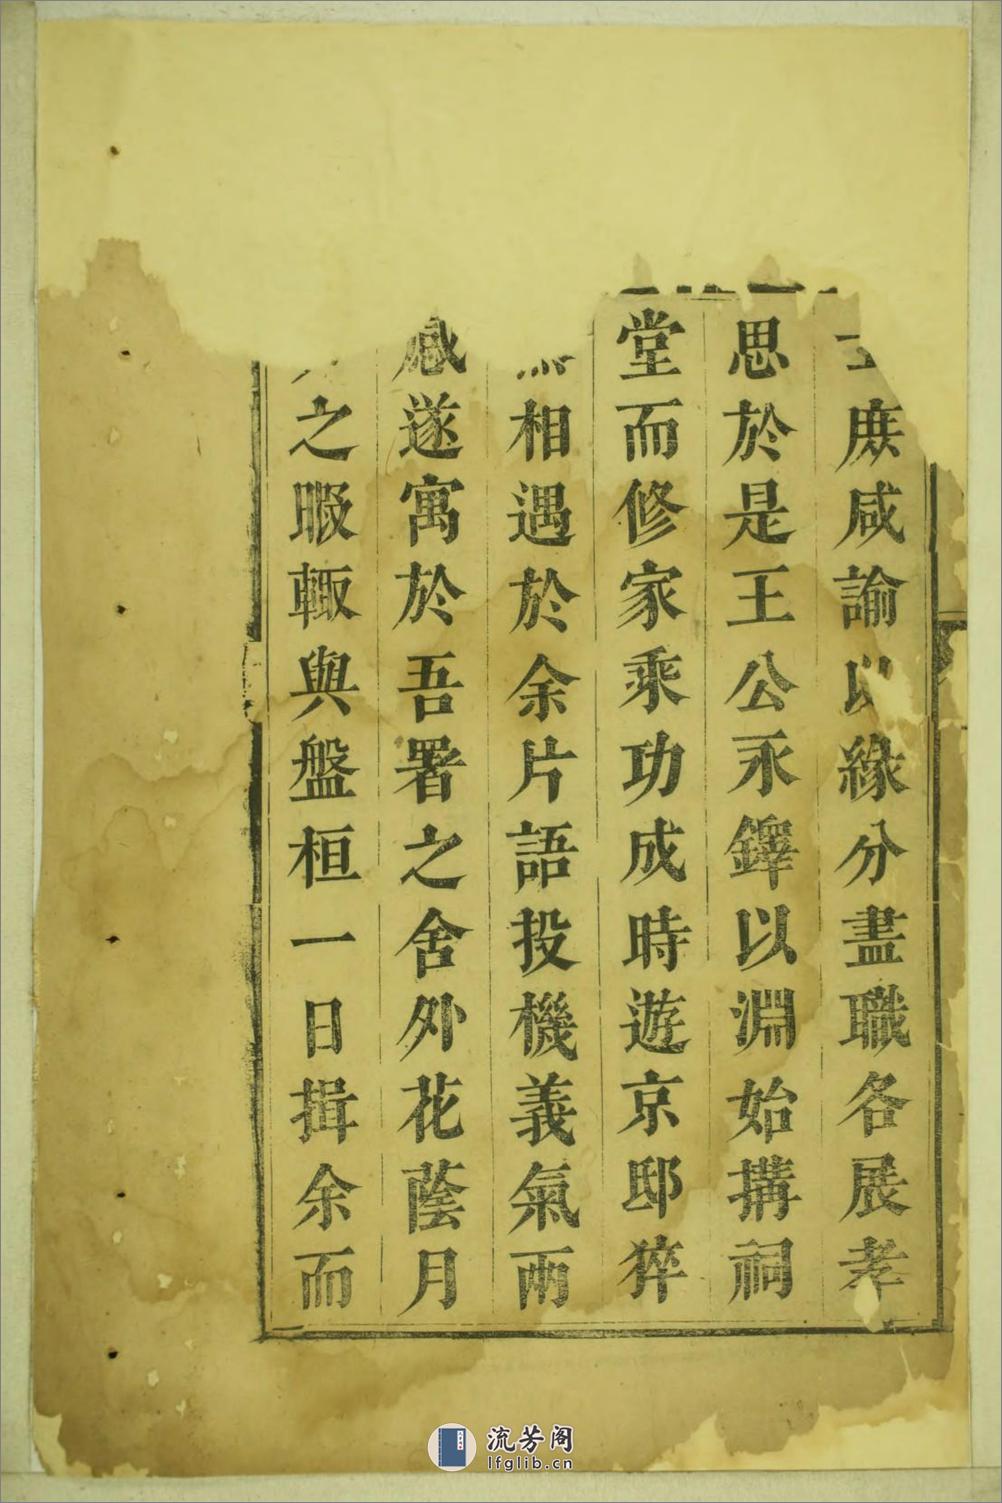 庶咸諭以緣分盡職各展孝
思於是王公永鐸以淵始搆祠
堂而修家乘功成時遊京邸猝
然相遇於余片語投機義氣兩
感遂寓於吾署之舍外花蔭月
之暇輙與盤桓一日揖余而
流芳阁
lfglib.cn